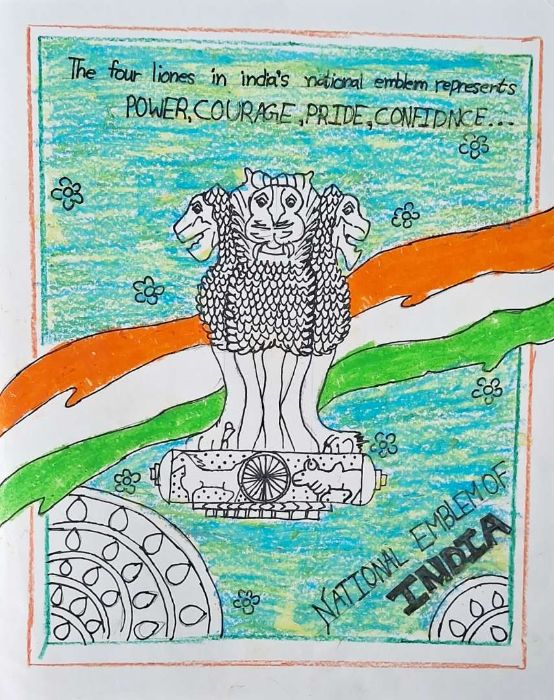 The four liones in india's national emblem represents
POWER, COURAGE, PRIDE, CONFIDNCE...
NATIONAL EMBLEM OF
INDIA